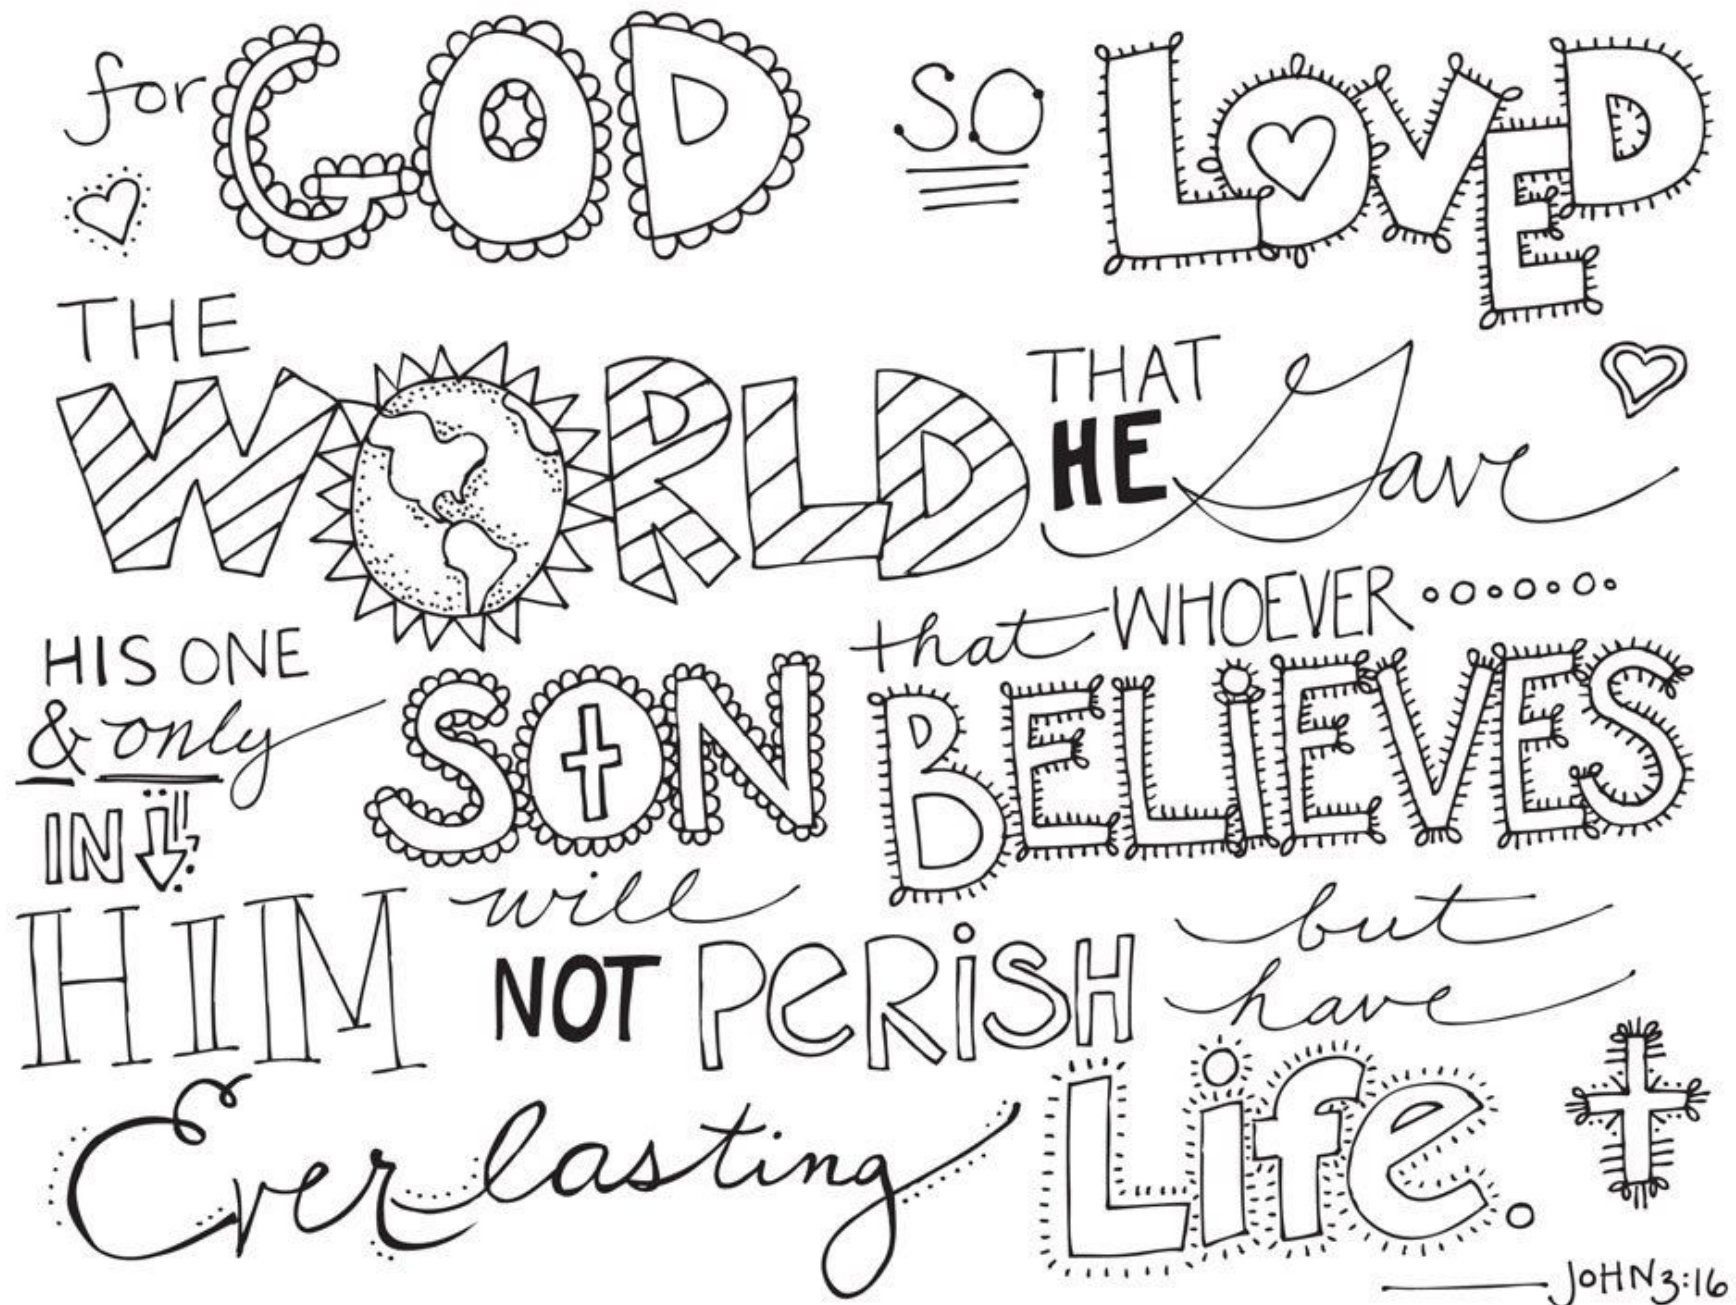 for GOD so LOVED
THE
WORLD THAT
HE Gave
HIS ONE
& only
SON
that WHOEVER
BELiEVES
IN
HIM will
NOT PeRiSH
but
have
Everlasting Life.
JOHN 3:16